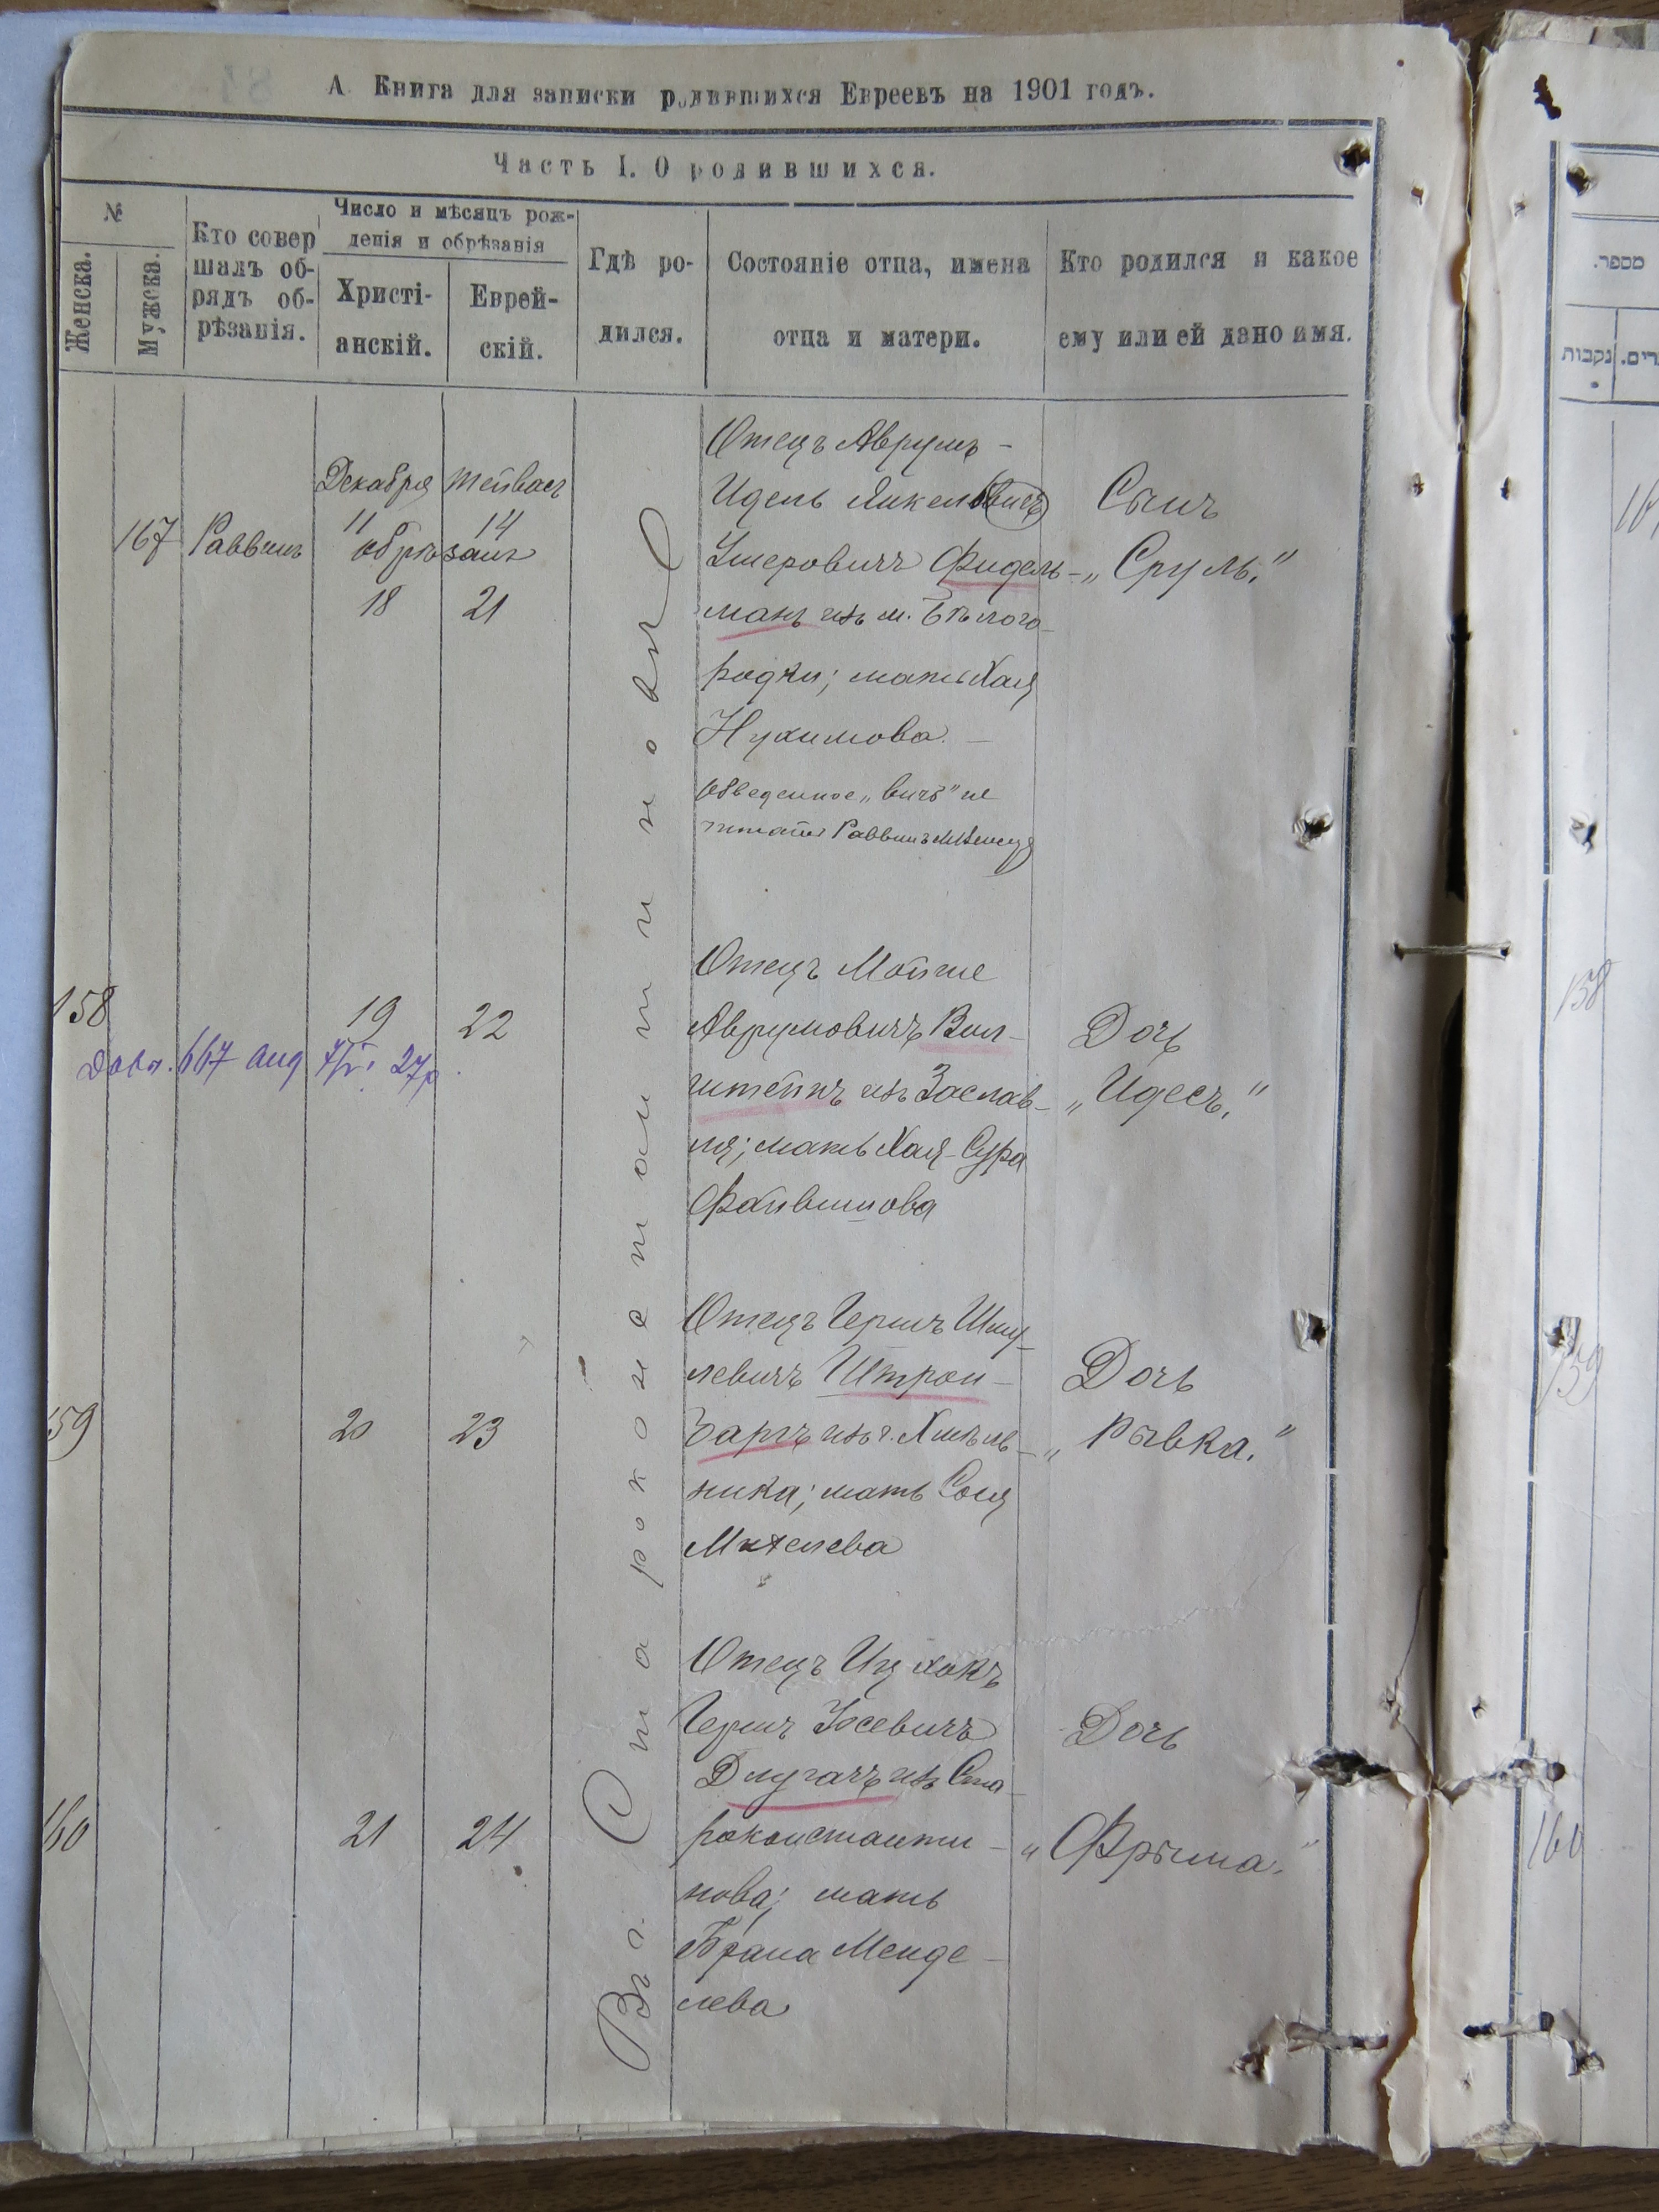 А. Книга для записки родившихся Евреевъ на 1901 годъ.
Часть I. О родившихся.
№
Женска.
Мужска.
Кто совер
шалъ об-
рядъ об-
рѣзанія.
Число и мѣсяцъ рож-
денія и обрѣзанія
Христі-
анскій.
Еврей-
скій.
Гдѣ ро-
дился.
Состояніе отца, имена
отца и матери.
Кто родился и какое
ему или ей дано имя.
167
Раввинъ
Декабря
11
обрѣзанъ
18
Тейвасъ
14
21
Въ г. Староконстантиновѣ
Отецъ Аврумъ-
Идель Янкелевичъ
Ушеровичъ Фидель-
манъ изъ м. Бѣлого-
родки; мать Хая
Нухимова. —
Обведенное „вичъ" не
читать Раввинъ
Сынъ
„Сруль."
158
19
22
667
27
Отецъ Мойше
Аврумовичъ Вил-
штейнъ изъ Заслав-
ля; мать Хая-Сура
Файвишова
Дочь
„Идесъ."
159
20
23
Отецъ Гершъ Шму-
левичъ Штром-
варгъ изъ г. Хмѣль-
ника; мать Соня
Дочь
„Рывка."
160
21
24
Отецъ Ицхокъ
Гершъ Іосевичъ
Длугачъ изъ Ста-
роконстанти-
нова; мать
Менде-
лева
Дочь
„Фрыма."
מספר.
נקבות
158
159
160